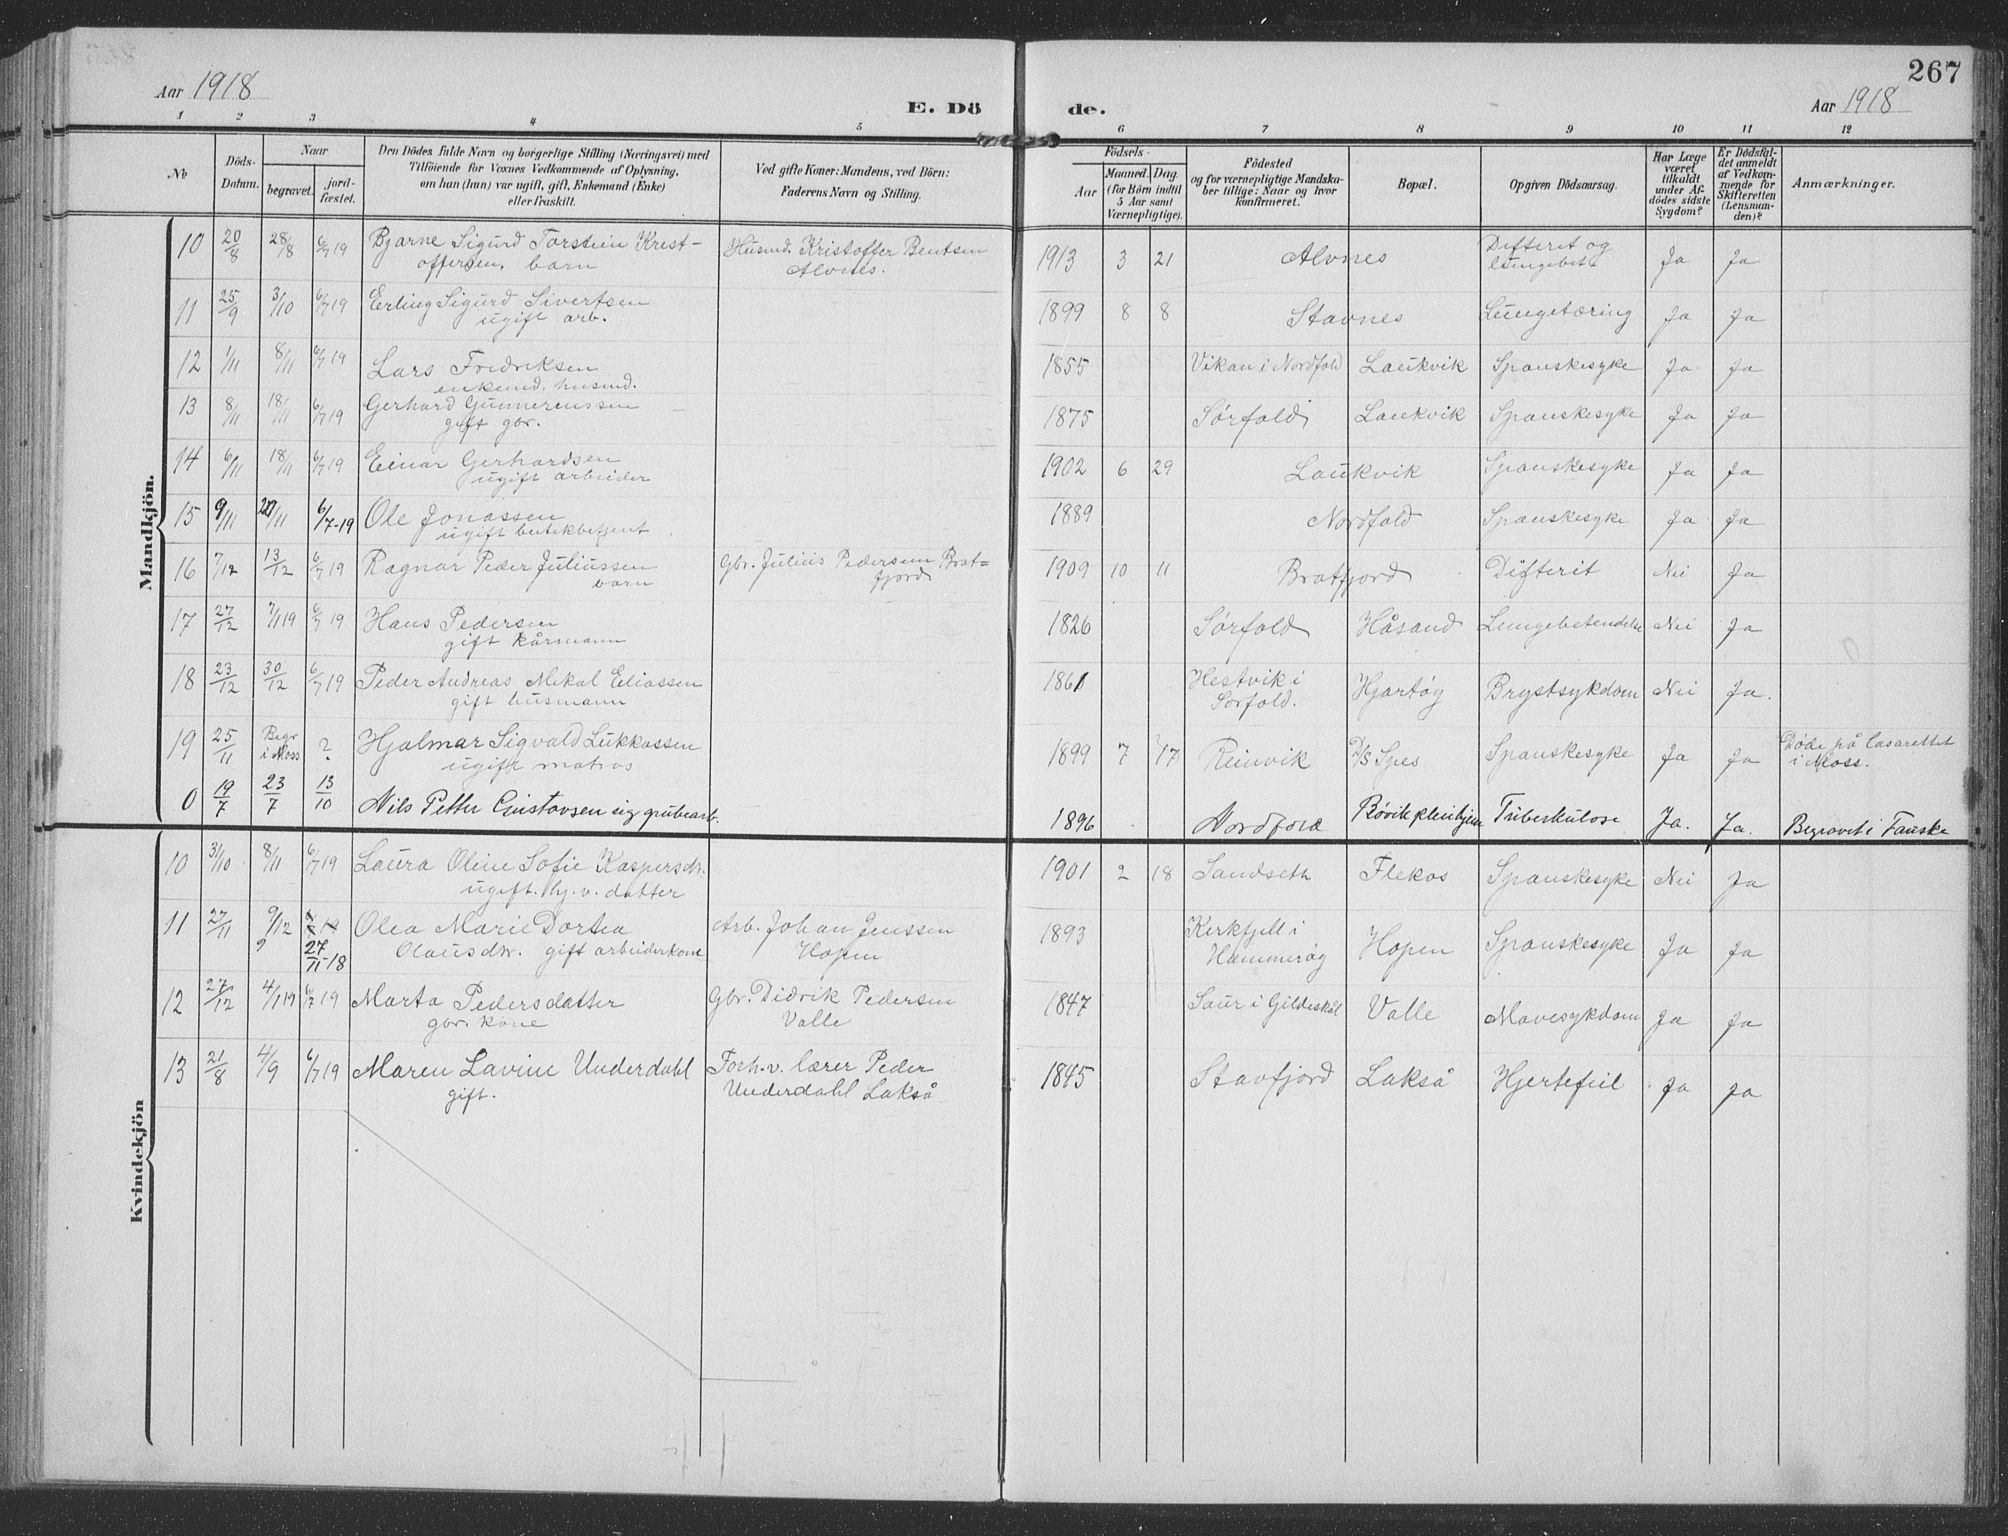 267
Aar 1918
E. Dö de.
Aar 1918
1 2 3 4 5 6 7 8 9 10 11 12
No
Döds-
Datum.
Naar
begravet.
jord-
fæstet.
Den Dödes fulde Navn og borgerlige Stilling (Næringsvei) med
Tilföiende for Voxnes Vedkommende af Oplysning,
om han (hun) var ugift, gift, Enkemand (Enke)
eller fraskilt.
Ved gifte Koner: Mandens, ved Börn:
Faderens Navn og Stilling.
Födsels-
Aar
Maaned. Dag.
(for Börn indtil
5 Aar samt
Værnepligtige).
Födested
og for værnepligtige Mandska-
ber tillige: Naar og hvor
konfirmeret.
Bopæl.
Opgiven Dödsaarsag.
Har Læge
været
tilkaldt
under Af-
dödes sidste
Sygdom?
Er Dödsfal-
det anmeldt
af Vedkom-
mende for
Skifteretten
(Lensman-
den)?
Anmærkninger.
Mandkjön.
10 20/8 28/8 6/7 19 Bjarne Sigurd Torstein Krest- Husmd. Kristoffer Bentsen 1913 3 21 Alvnes Difterit og Ja Ja
offersen, barn Alvnes. lungebet.
11 25/9 3/10 6/7 19 Erling Sigurd Sivertsen 1899 8 8 Stavnes Lungetæring Ja Ja
ugift arb.
12 1/11 8/11 6/7 19 Lars Fredriksen 1855 Vikan i Nordfold Laukvik Spanskesyke Ja Ja
enkemd. husmd.
13 8/11 18/11 6/7 19 Gerhard Gunnerenssen 1875 Sørfold Laukvik Spanskesyke Ja Ja
gift gbr.
14 6/11 18/11 6/7 19 Einar Gerhardsen 1902 6 29 Laukvik Spanskesyke Ja Ja
ugift arbeider
15 9/11 /11 6/7-19 Ole Jonassen 1889 Nordfold Spanskesyke Ja Ja
ugift butikbetjent
16 7/12 13/12 6/7 19 Ragnar Peder Juliussen Gbr. Julius Pedersen Brat= 1909 10 11 Bratfjord Difterit Nei Ja
barn fjord
17 27/12 7/1 19 6/7 19 Hans Pedersen 1826 Sørfold Håsand Lungebetendelse Nei Ja
gift kårmann
18 23/12 30/12 6/7 19 Peder Andreas Mikal Eliassen 1861 Hestvik i Hjartøy Brystsykdom Nei Ja.
gift husmann Sørfold.
19 25/11 Begr ? Hjalmar Sigvald Lukkassen 1899 7 17 Reinvik D/S Spes Spanskesyke Ja Ja Døde på lasarettet
i Moss ugift matros i Moss.
0 19/7 23/7 13/10 Nils Petter Gustavsen ug grubearb. 1896 Nordfold Bøvik pleiehjem Tuberkulose Ja. Ja. Begravet i Fauske
Kvindekjön
10 3/10 8/11 6/7 19 Laura Oline Sofie Kaspersdtr. 1901 2 18 Sandseth Flekos Spanskesyke Nei Ja
ugift. hj. v. datter
11 27/11 9/12 Olea Marie Dortea Arb. Johan Jenssen 1893 Kirkfjell i Hopen Spanskesyke Ja Ja
27/11-18 Olausdtr. gift arbeiderkone Hopen Hammerøy
12 27/12 4/1 19 6/7 19 Marta Pedersdatter Gbr. Didrik Pedersen 1847 Saur i Gildeskål Valle Mavesykdom Ja Ja
gbr. kone Valle
13 21/8 4/9 6/7 19 Maren Lavine Underdahl Forh.v. lærer Peder 1845 Stavfjord Lakså Hjertefeil Ja Ja
gift. Underdahl Lakså